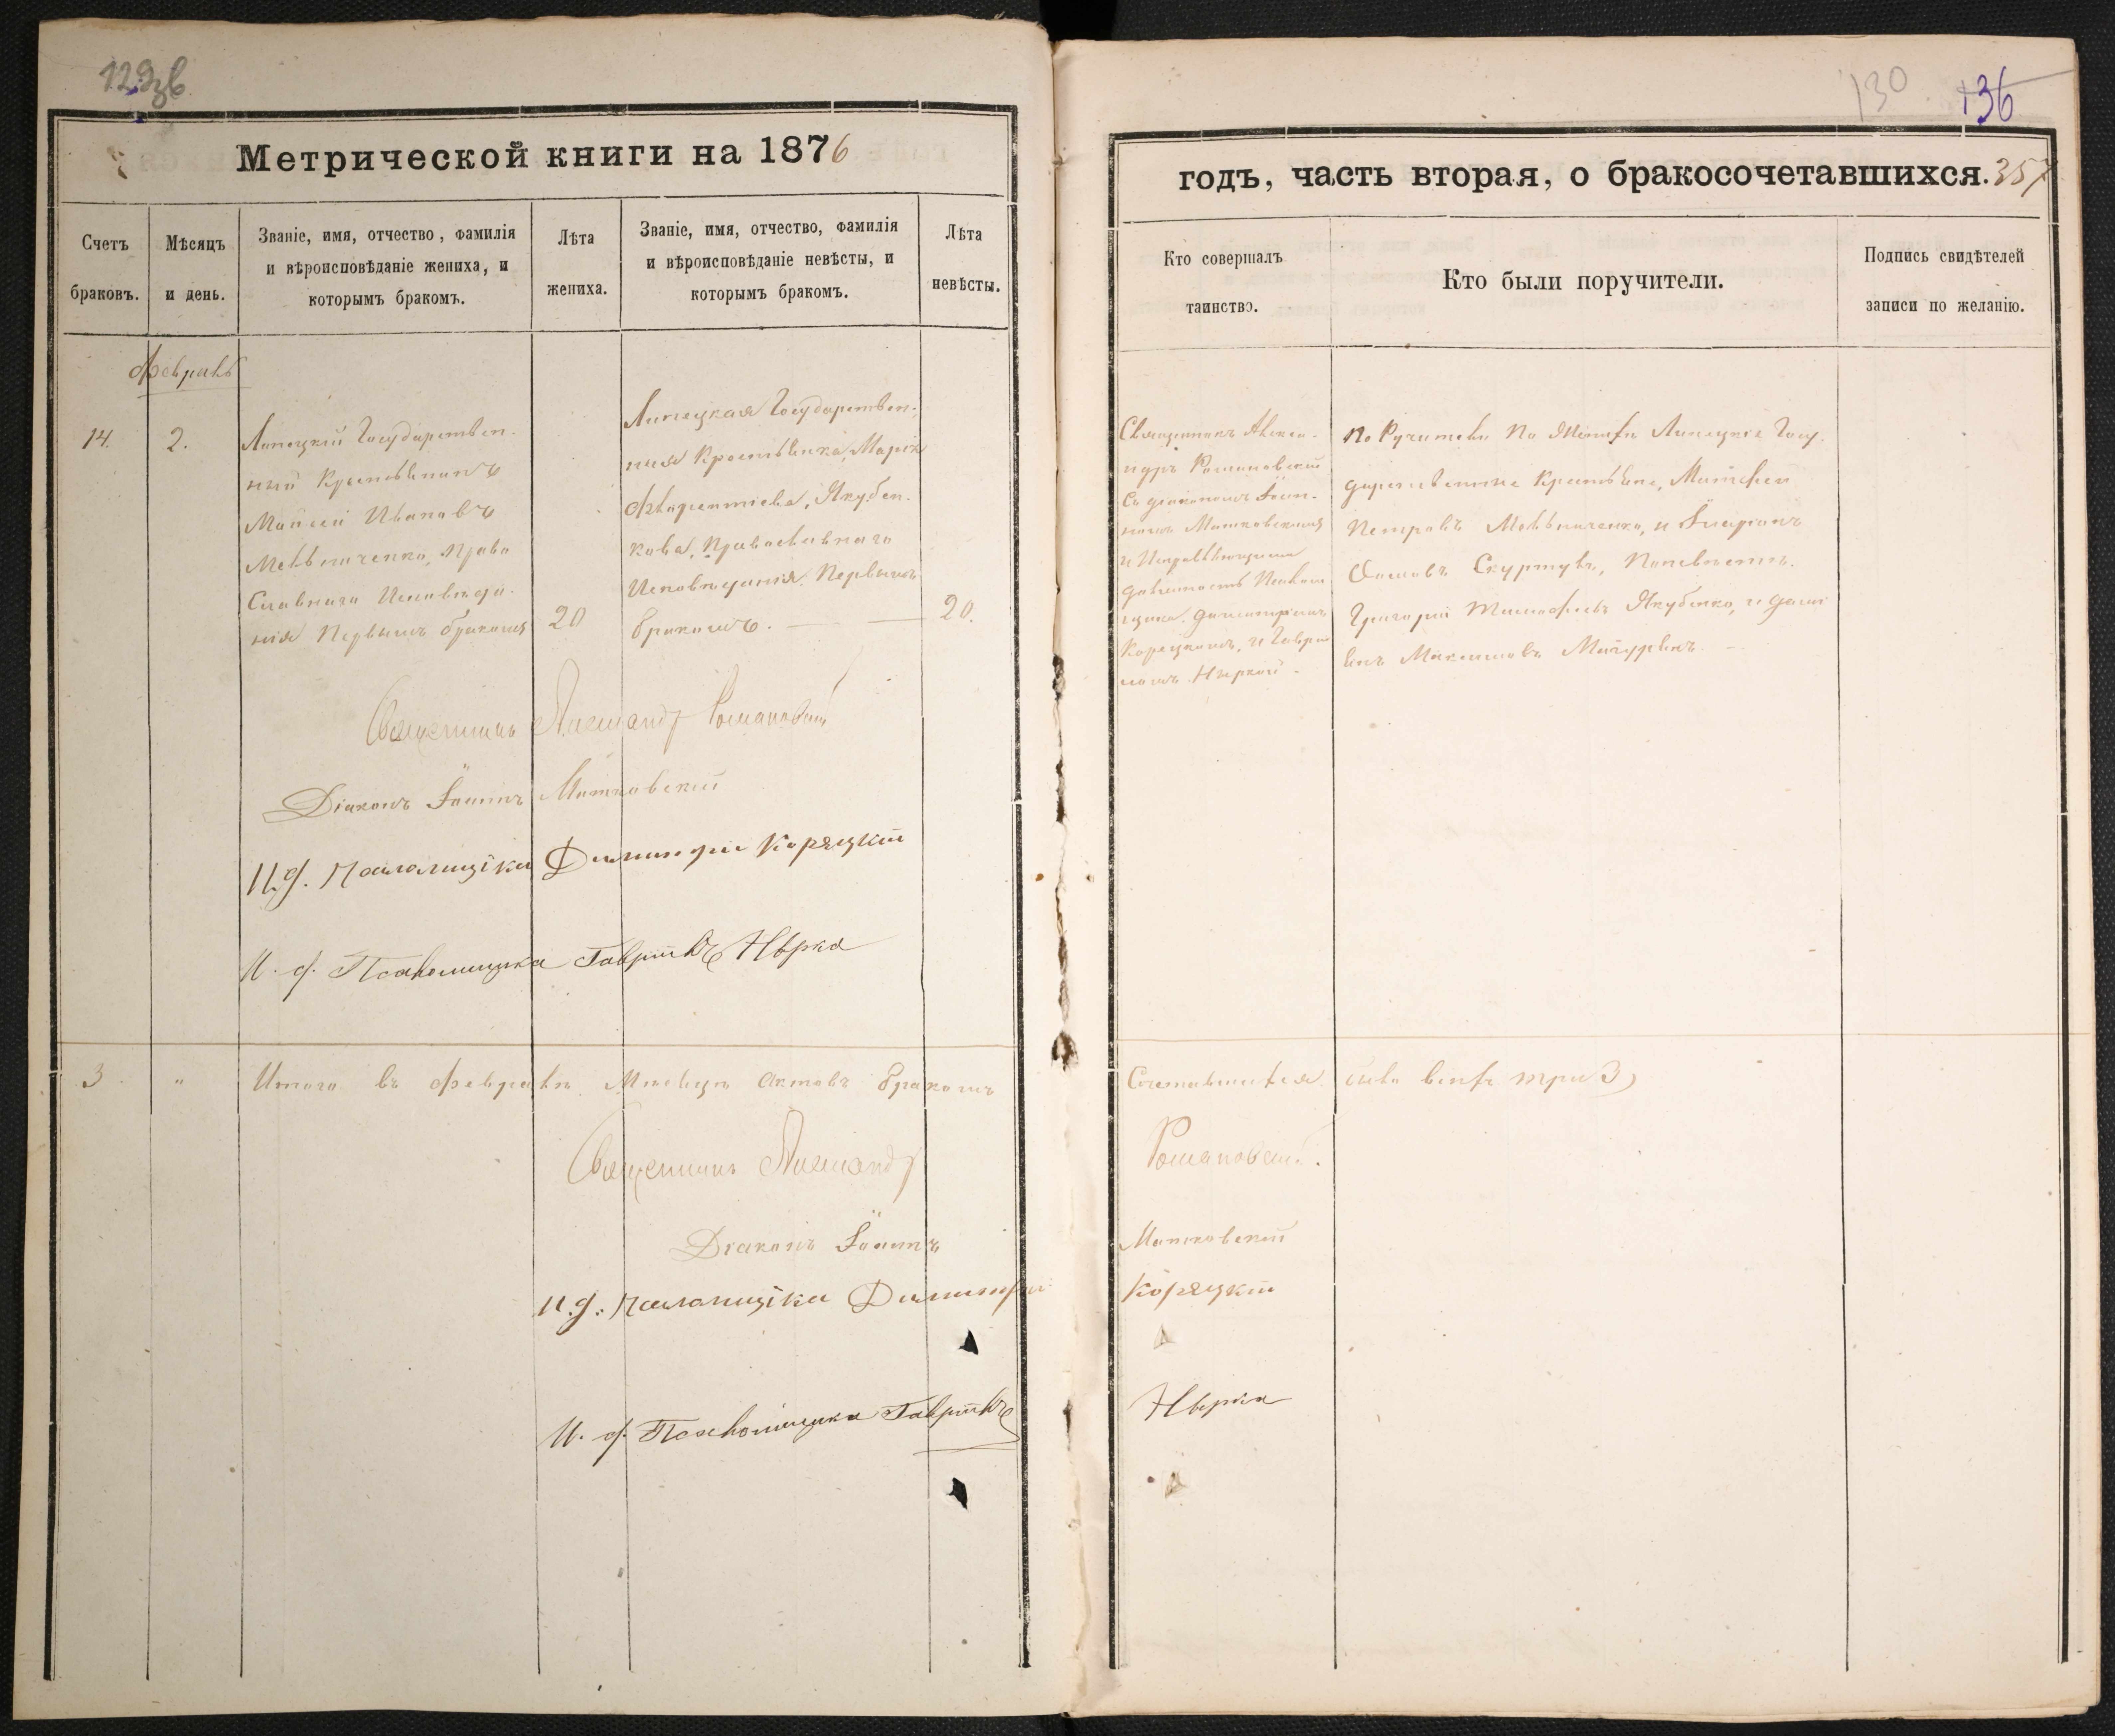 129зв
Метрической книги на 1876
Счетъ браковъ.
Мѣсяцъ и день.
Званіе, имя, отчество, фамилія
и вѣроисповѣданіе жениха, и
которымъ бракомъ.
Лѣта
жениха.
Званіе, имя, отчество, фамилія
и вѣроисповѣданіе невѣсты, и
которымъ бракомъ.
Лѣта
невѣсты.
Февраль
14.
2.
Липецкій Государствен-
ный Крестьянинъ
Моисей Ивановъ
Мельниченко, Право
Славнаго Исповѣда-
нія Первымъ бракомъ
20
Липецкая Государствен-
ная Крестьянка, Марія
Флорентіева, Якубен-
кова, Православнаго
Исповѣданія. Первымъ
бракомъ.
20.
Священникъ Александръ Романовскій
Діаконъ Іоаннъ Матковскій
И.д. Псаломщика Димитрій Корецкій
И. д. Псаломщика Гавріилъ Нырка
3
"
Итого въ Февралѣ Мѣсяцѣ Актовъ бракомъ
Священникъ Александръ
Діаконъ Іоаннъ
И.д. Псаломщика Димитрій
И. д. Псаломщика Гавріилъ
130
136
годъ, часть вторая, о бракосочетавшихся. 357
Кто совершалъ
таинство.
Кто были поручители.
Подпись свидѣтелей
записи по желанію.
Священникъ Алекса-
ндръ Романовскій
Съ діакономъ Іоан-
номъ Матковскимъ
и Исправляющими
должность Псалом
щика. Димитріемъ
Корецкимъ, и Гаврі
иломъ Ныркой.
По Ручители По Женихѣ Липецкіе Госу-
дарственные Крестьяне, Матфей
Петровъ Мельниченко, и Иларіонъ
Фомовъ Скуртулъ, По невѣстѣ.
Григорій Тимофеевъ Якубенко, и Дани
илъ Максимовъ
Сочетавшихся было всѣхъ три 3)
Романовскій.
Матковскій
Корецкій
Нырка